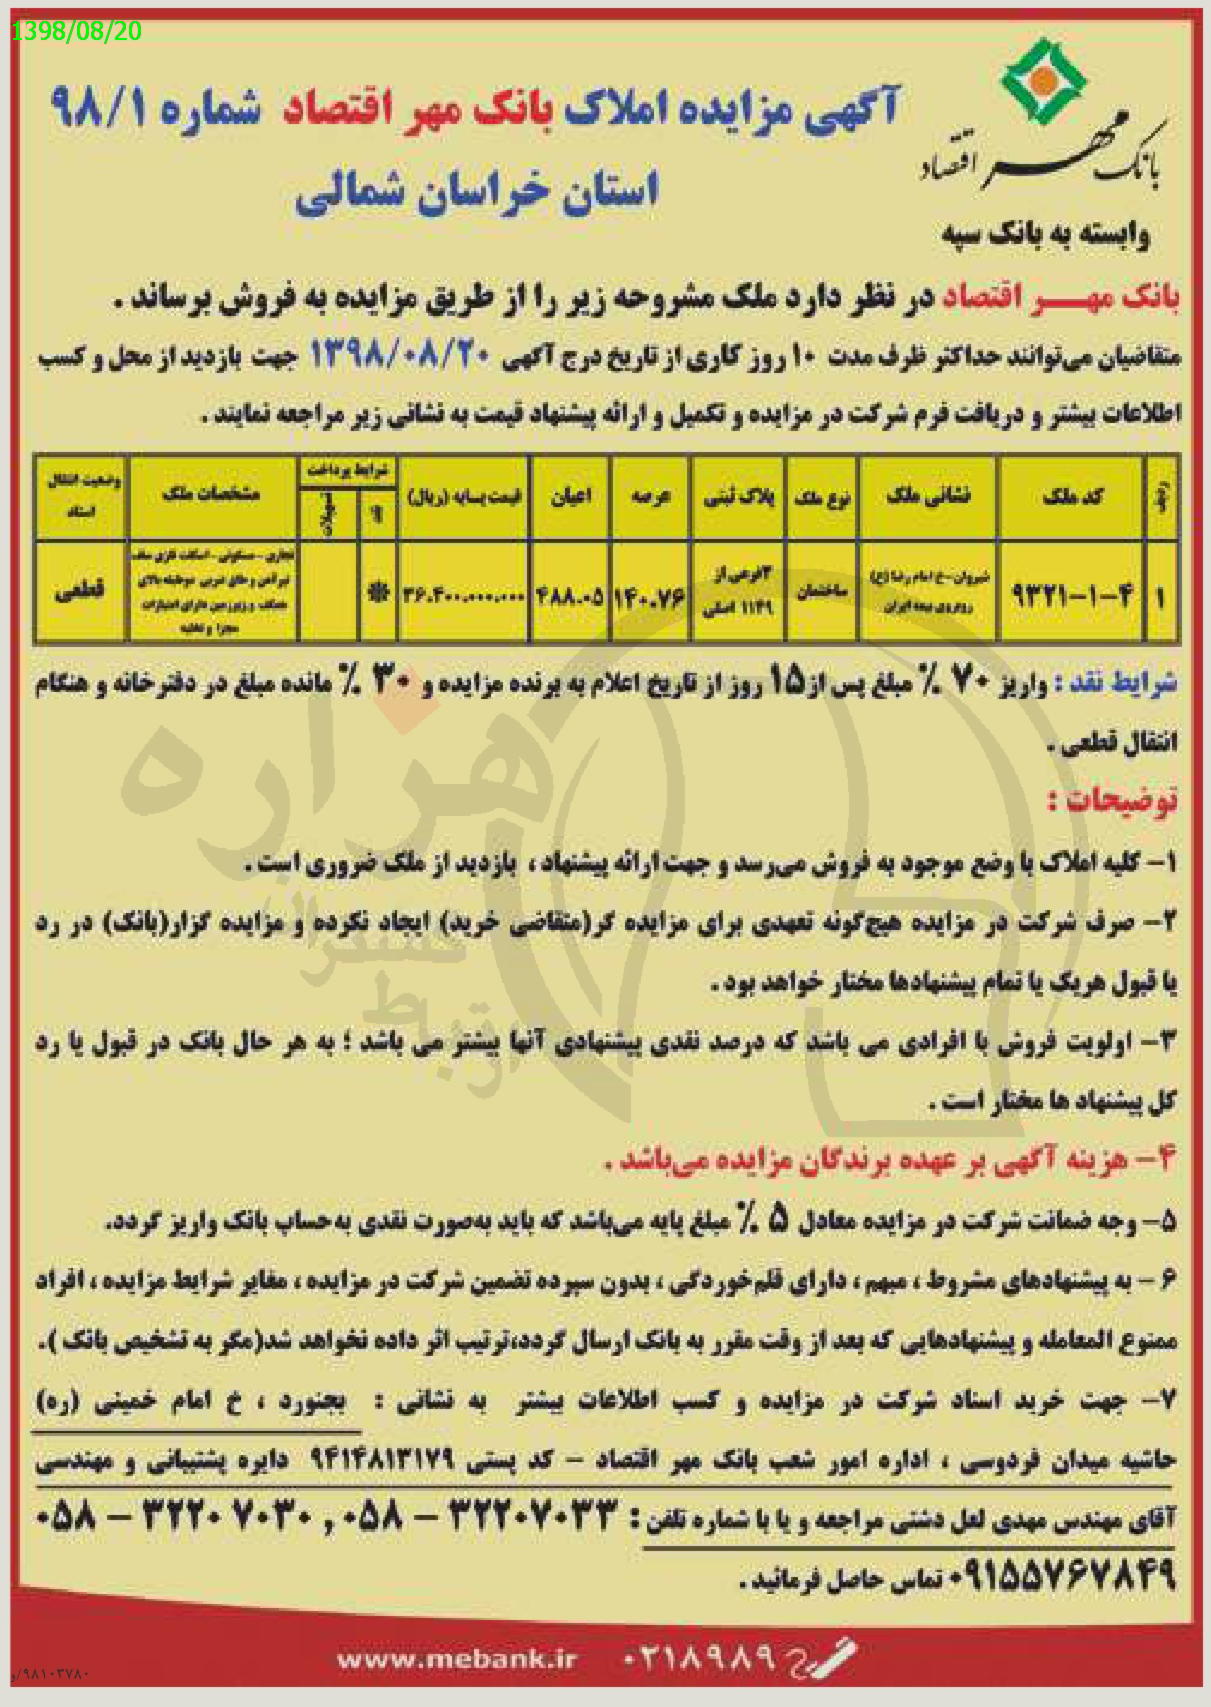 1398/08/20
بانک مهر اقتصاد
آگهی مزایده املاک بانک مهر اقتصاد شماره ۹۸/۱
استان خراسان شمالی
وابسته به بانک سپه
بانک مهــــر اقتصاد در نظر دارد ملک مشروحه زیر را از طریق مزایده به فروش برساند .
متقاضیان می‌توانند حداکثر ظرف مدت ۱۰ روز کاری از تاریخ درج آگهی ۱۳۹۸/۰۸/۲۰ جهت بازدید از محل و کسب
اطلاعات بیشتر و دریافت فرم شرکت در مزایده و تکمیل و ارائه پیشنهاد قیمت به نشانی زیر مراجعه نمایند .
ردیف کد ملک نشانی ملک نوع ملک پلاک ثبتی عرصه اعیان قیمت پایه (ریال) شرایط پرداخت نقد تسهیلات مشخصات ملک وضعیت انتقال اسناد
۱ ۹۳۲۱-۱-۴ شیروان-خ امام رضا (ع) روبروی بیمه ایران ساختمان ۳فرعی از ۱۱۴۹ اصلی ۱۴۰.۷۶ ۴۸۸.۰۵ ۳۶.۴۰۰.۰۰۰.۰۰۰ * تجاری - مسکونی - اسکلت فلزی سقف تیرآهن و طاق ضربی دوطبقه بالای همکف و زیرزمین دارای امتیازات مجزا و تخلیه قطعی
شرایط نقد : واریز ۷۰ ٪ مبلغ پس از ۱۵ روز از تاریخ اعلام به برنده مزایده و ۳۰ ٪ مانده مبلغ در دفترخانه و هنگام
انتقال قطعی .
توضیحات :
۱- کلیه املاک با وضع موجود به فروش می‌رسد و جهت ارائه پیشنهاد ، بازدید از ملک ضروری است .
۲- صرف شرکت در مزایده هیچ‌گونه تعهدی برای مزایده گر(متقاضی خرید) ایجاد نکرده و مزایده گزار(بانک) در رد
یا قبول هریک یا تمام پیشنهادها مختار خواهد بود .
۳- اولویت فروش با افرادی می باشد که درصد نقدی پیشنهادی آنها بیشتر می باشد ؛ به هر حال بانک در قبول یا رد
کل پیشنهاد ها مختار است .
۴- هزینه آگهی بر عهده برندگان مزایده می‌باشد .
۵- وجه ضمانت شرکت در مزایده معادل ۵ ٪ مبلغ پایه می‌باشد که باید به‌صورت نقدی به‌حساب بانک واریز گردد.
۶ - به پیشنهادهای مشروط ، مبهم ، دارای قلم‌خوردگی ، بدون سپرده تضمین شرکت در مزایده ، مغایر شرایط مزایده ، افراد
ممنوع المعامله و پیشنهادهایی که بعد از وقت مقرر به بانک ارسال گردد،ترتیب اثر داده نخواهد شد(مگر به تشخیص بانک ).
۷- جهت خرید اسناد شرکت در مزایده و کسب اطلاعات بیشتر به نشانی : بجنورد ، خ امام خمینی (ره)
حاشیه میدان فردوسی ، اداره امور شعب بانک مهر اقتصاد - کد پستی ۹۴۱۴۸۱۳۱۷۹ دایره پشتیبانی و مهندسی
آقای مهندس مهدی لعل دشتی مراجعه و یا با شماره تلفن : ۳۲۲۰۷۰۳۳ - ۰۵۸ , ۳۲۲۰۷۰۳۰ - ۰۵۸
۰۹۱۵۵۷۶۷۸۴۹ تماس حاصل فرمائید .
www.mebank.ir ۰۲۱۸۹۸۹
۹۸۱۰۳۷۸۰/
هزاره